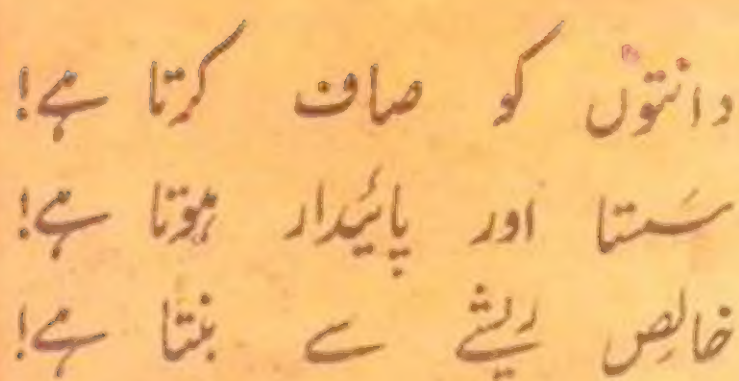 دانتوں کو صاف کرتا ہے!
سَستا اور پائیدار ہوتا ہے!
خالِص ریشے سے بنتا ہے!